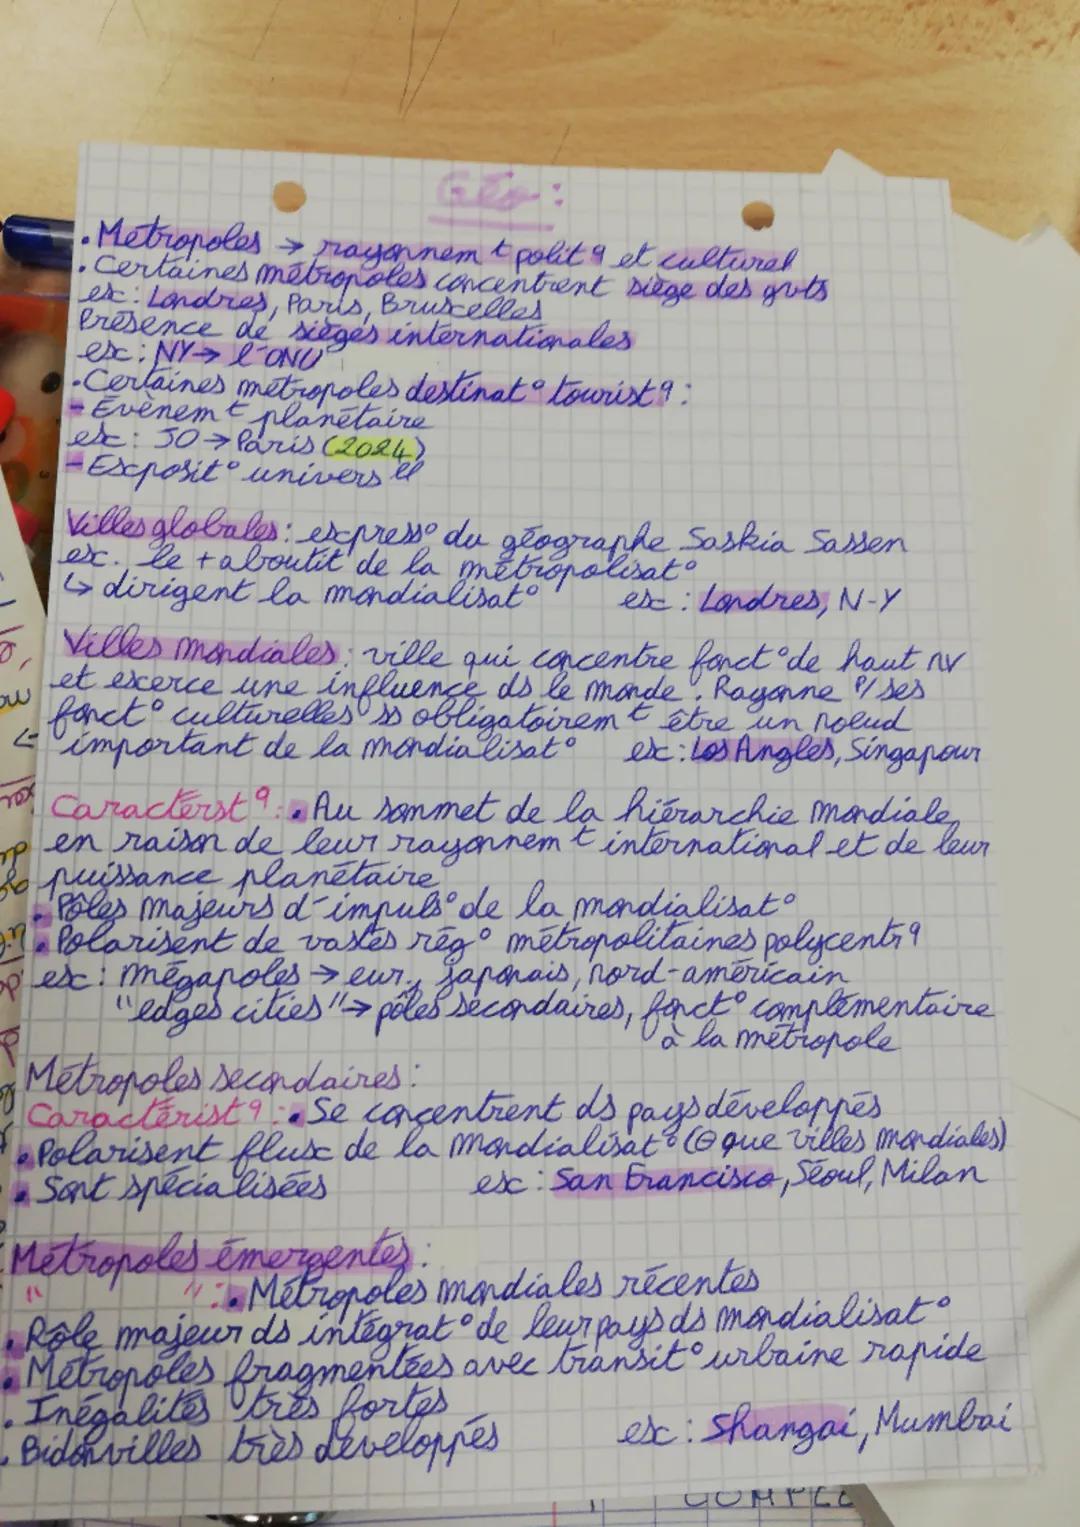 Géo :
• Métropoles → rayonnem t polit q et culturel
• Certaines métropoles concentrent siège des gvts
ex : Londres, Paris, Bruxelles
Présence de sièges internationales
ex : NY → l'ONU
• Certaines métropoles destinat° tourist q :
- Évènem t planétaire
ex : JO → Paris (2024)
- Exposit° univers el
Villes globales : express° du géographe Saskia Sassen
ex. le + aboutit de la métropolisat°
↳ dirigent la mondialisat° ex : Londres, N-Y
Villes mondiales : ville qui concentre fonct° de haut nv
et exerce une influence ds le monde. Rayonne p/ ses
fonct° culturelles ss obligatoirem t être un noeud
important de la mondialisat° ex : Los Angles, Singapour
Caractérst q : • Au sommet de la hiérarchie mondiale,
en raison de leur rayonnem t international et de leur
puissance planétaire
• Pôles majeurs d'impuls° de la mondialisat°
• Polarisent de vastes rég° métropolitaines polycentr q
ex : mégapoles → eur., japonais, nord-américain
"edges cities" → pôles secondaires, fonct° complémentaire
à la métropole
Métropoles secondaires :
Caractérist q : • Se concentrent ds pays développés
• Polarisent flux de la mondialisat° (⊖ que villes mondiales)
• Sont spécialisées ex : San Francisco, Séoul, Milan
Métropoles émergentes :
" " : • Métropoles mondiales récentes
• Rôle majeur ds intégrat° de leur pays ds mondialisat°
• Métropoles fragmentées avec transit° urbaine rapide
• Inégalités très fortes
• Bidonvilles très développés ex : Shangai, Mumbai